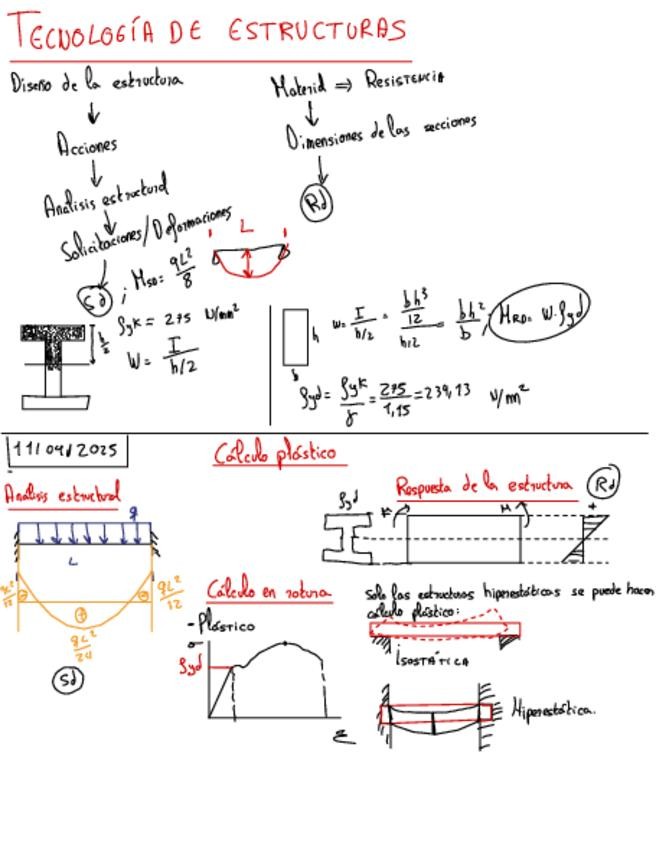 TECNOLOGÍA DE ESTRUCTURAS
Diseño de la estructura
↓
Acciones
↓
Análisis estructural
↓
Solicitaciones/Deformaciones
Sd ; MSD = qL²/8
L
Material ⇒ RESISTENCIA
↓
Dimensiones de las secciones
↓
Rd
h/2
fyk = 275 N/mm²
W = I / h/2
h
b
w = I / h/2 = bh³/12 / h/2 = bh²/6 ; MRD = W·fyd
fyd = fyk/γ = 275/1,15 = 239,13 N/mm²
11/04/2025
Cálculo plástico
Análisis estructural
q
L
qL²/12
qL²/12
qL²/24
Sd
Respuesta de la estructura Rd
fyd
M
+
Cálculo en rotura
- PLÁSTICO
σ
fyd
ε
Solo las estructuras hiperestáticas se puede hacer
cálculo plástico:
ISOSTÁTICA
Hiperestática.